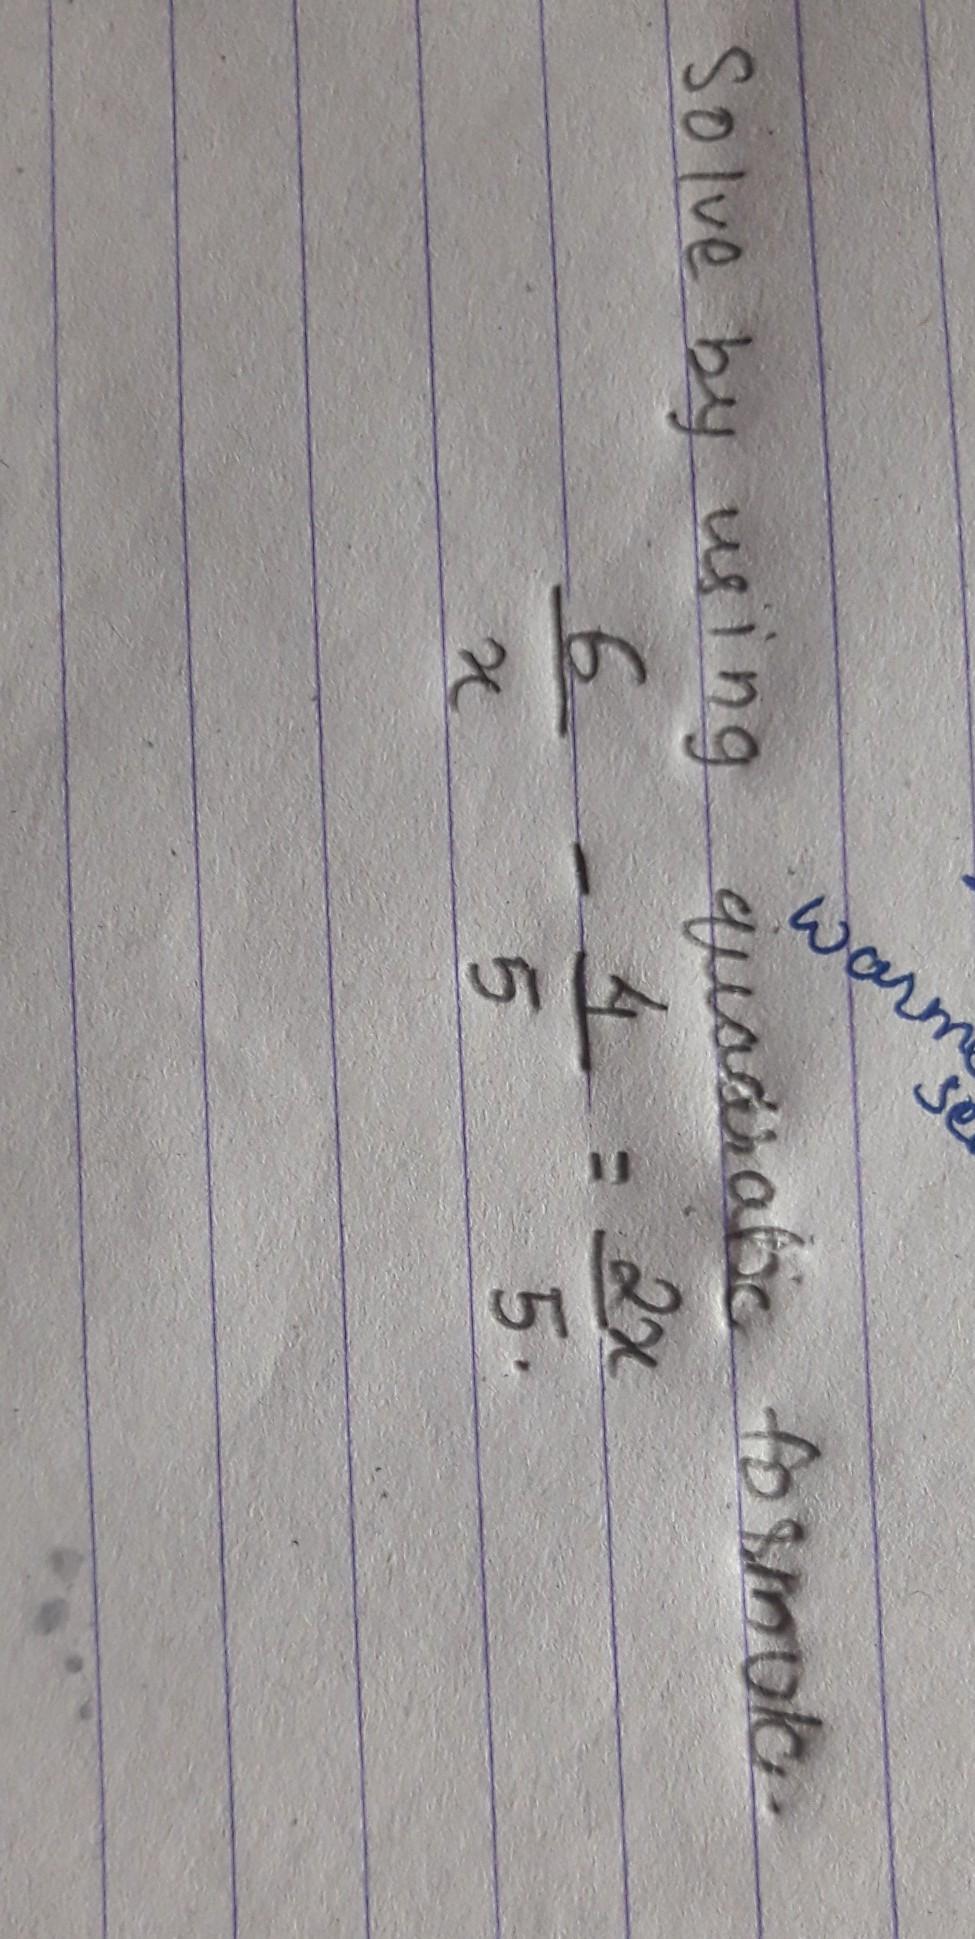 warm
se
Solve by using quadratic formula.
6/x - 4/5 = 2x/5.